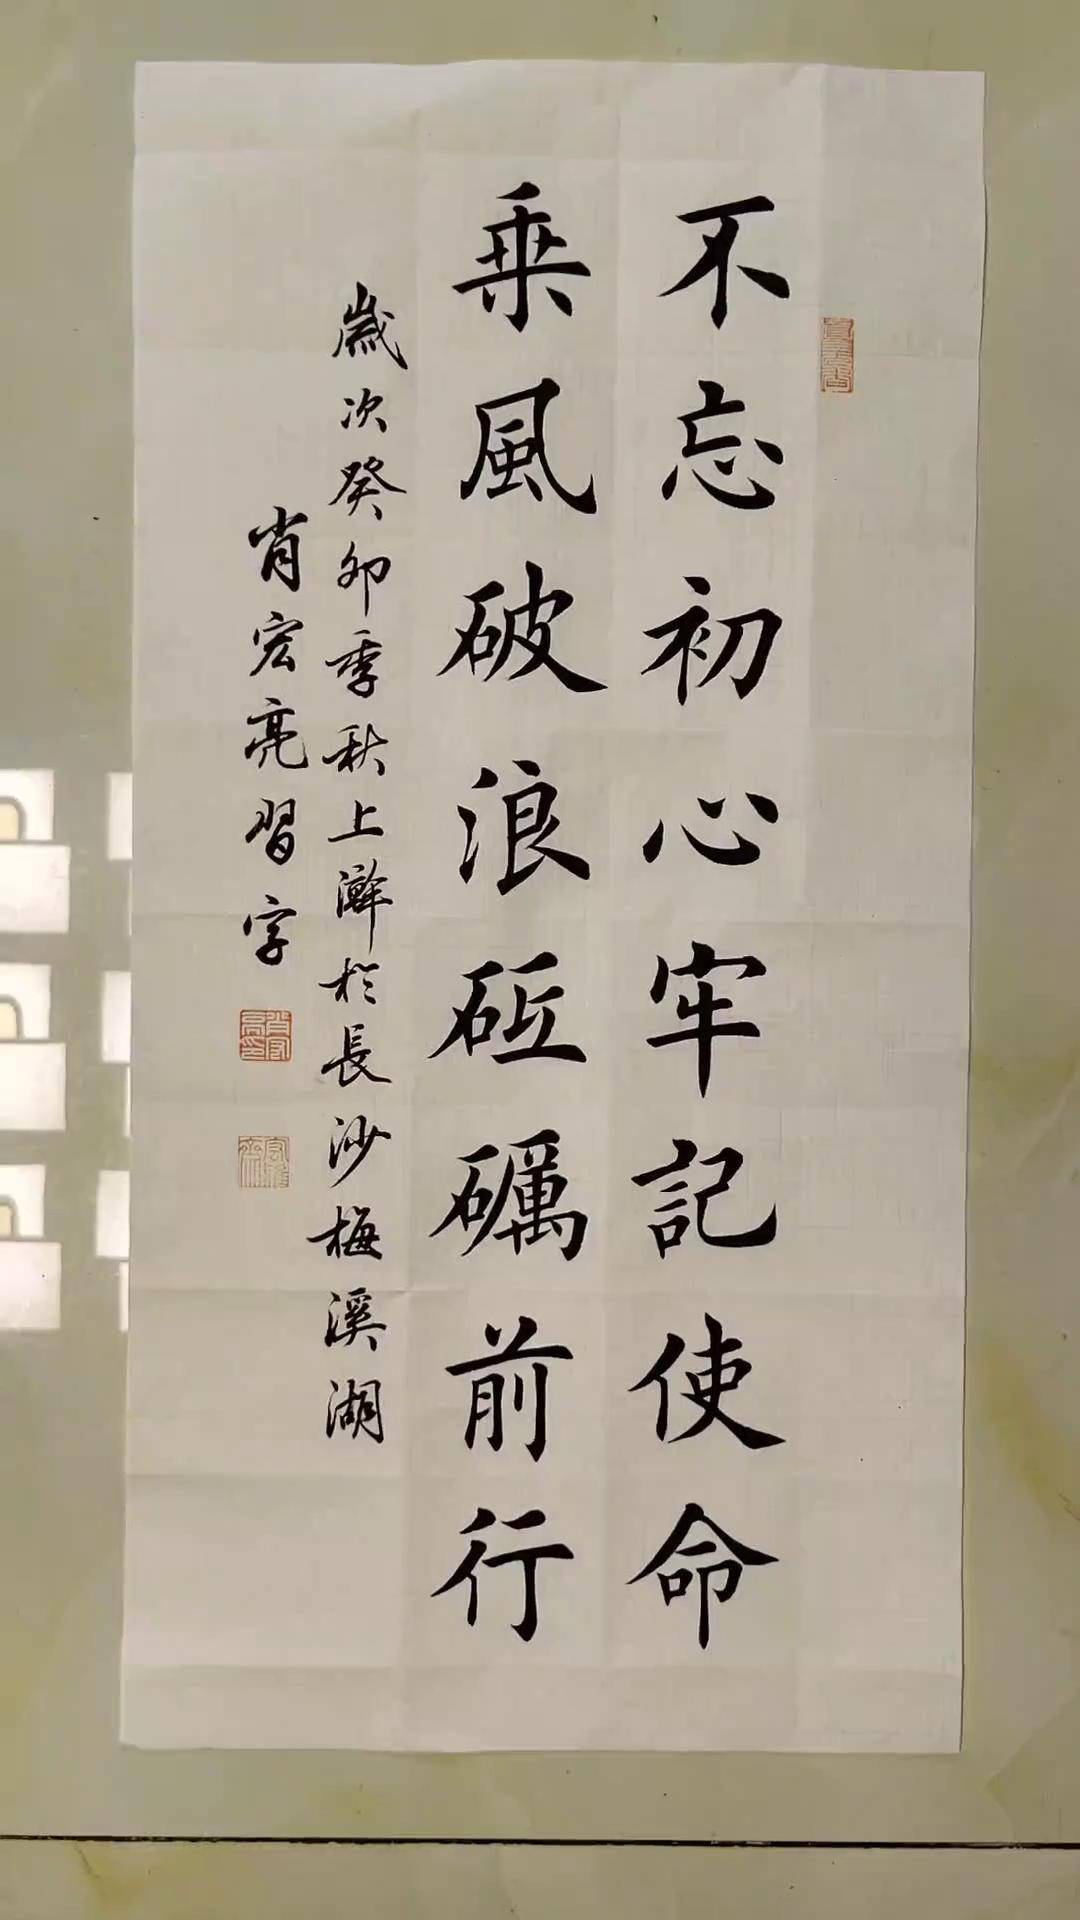 不忘初心牢記使命
乗風破浪砥礪前行
歲次癸卯季秋上澣於長沙梅溪湖
肖宏亮習字